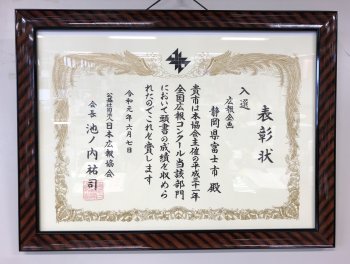 表彰状
入選
広報企画
静岡県富士市 殿
貴市は本協会主催の平成三十一年
全国広報コンクール当該部門
において頭書の成績を収めら
れたのでこれを賞します
令和元年六月七日
公益社団法人日本広報協会
会長 池ノ内祐司